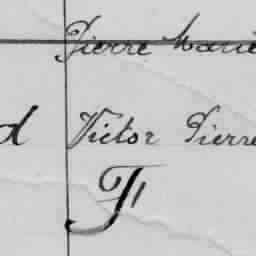 Pierre Marie
d Victor Pierre